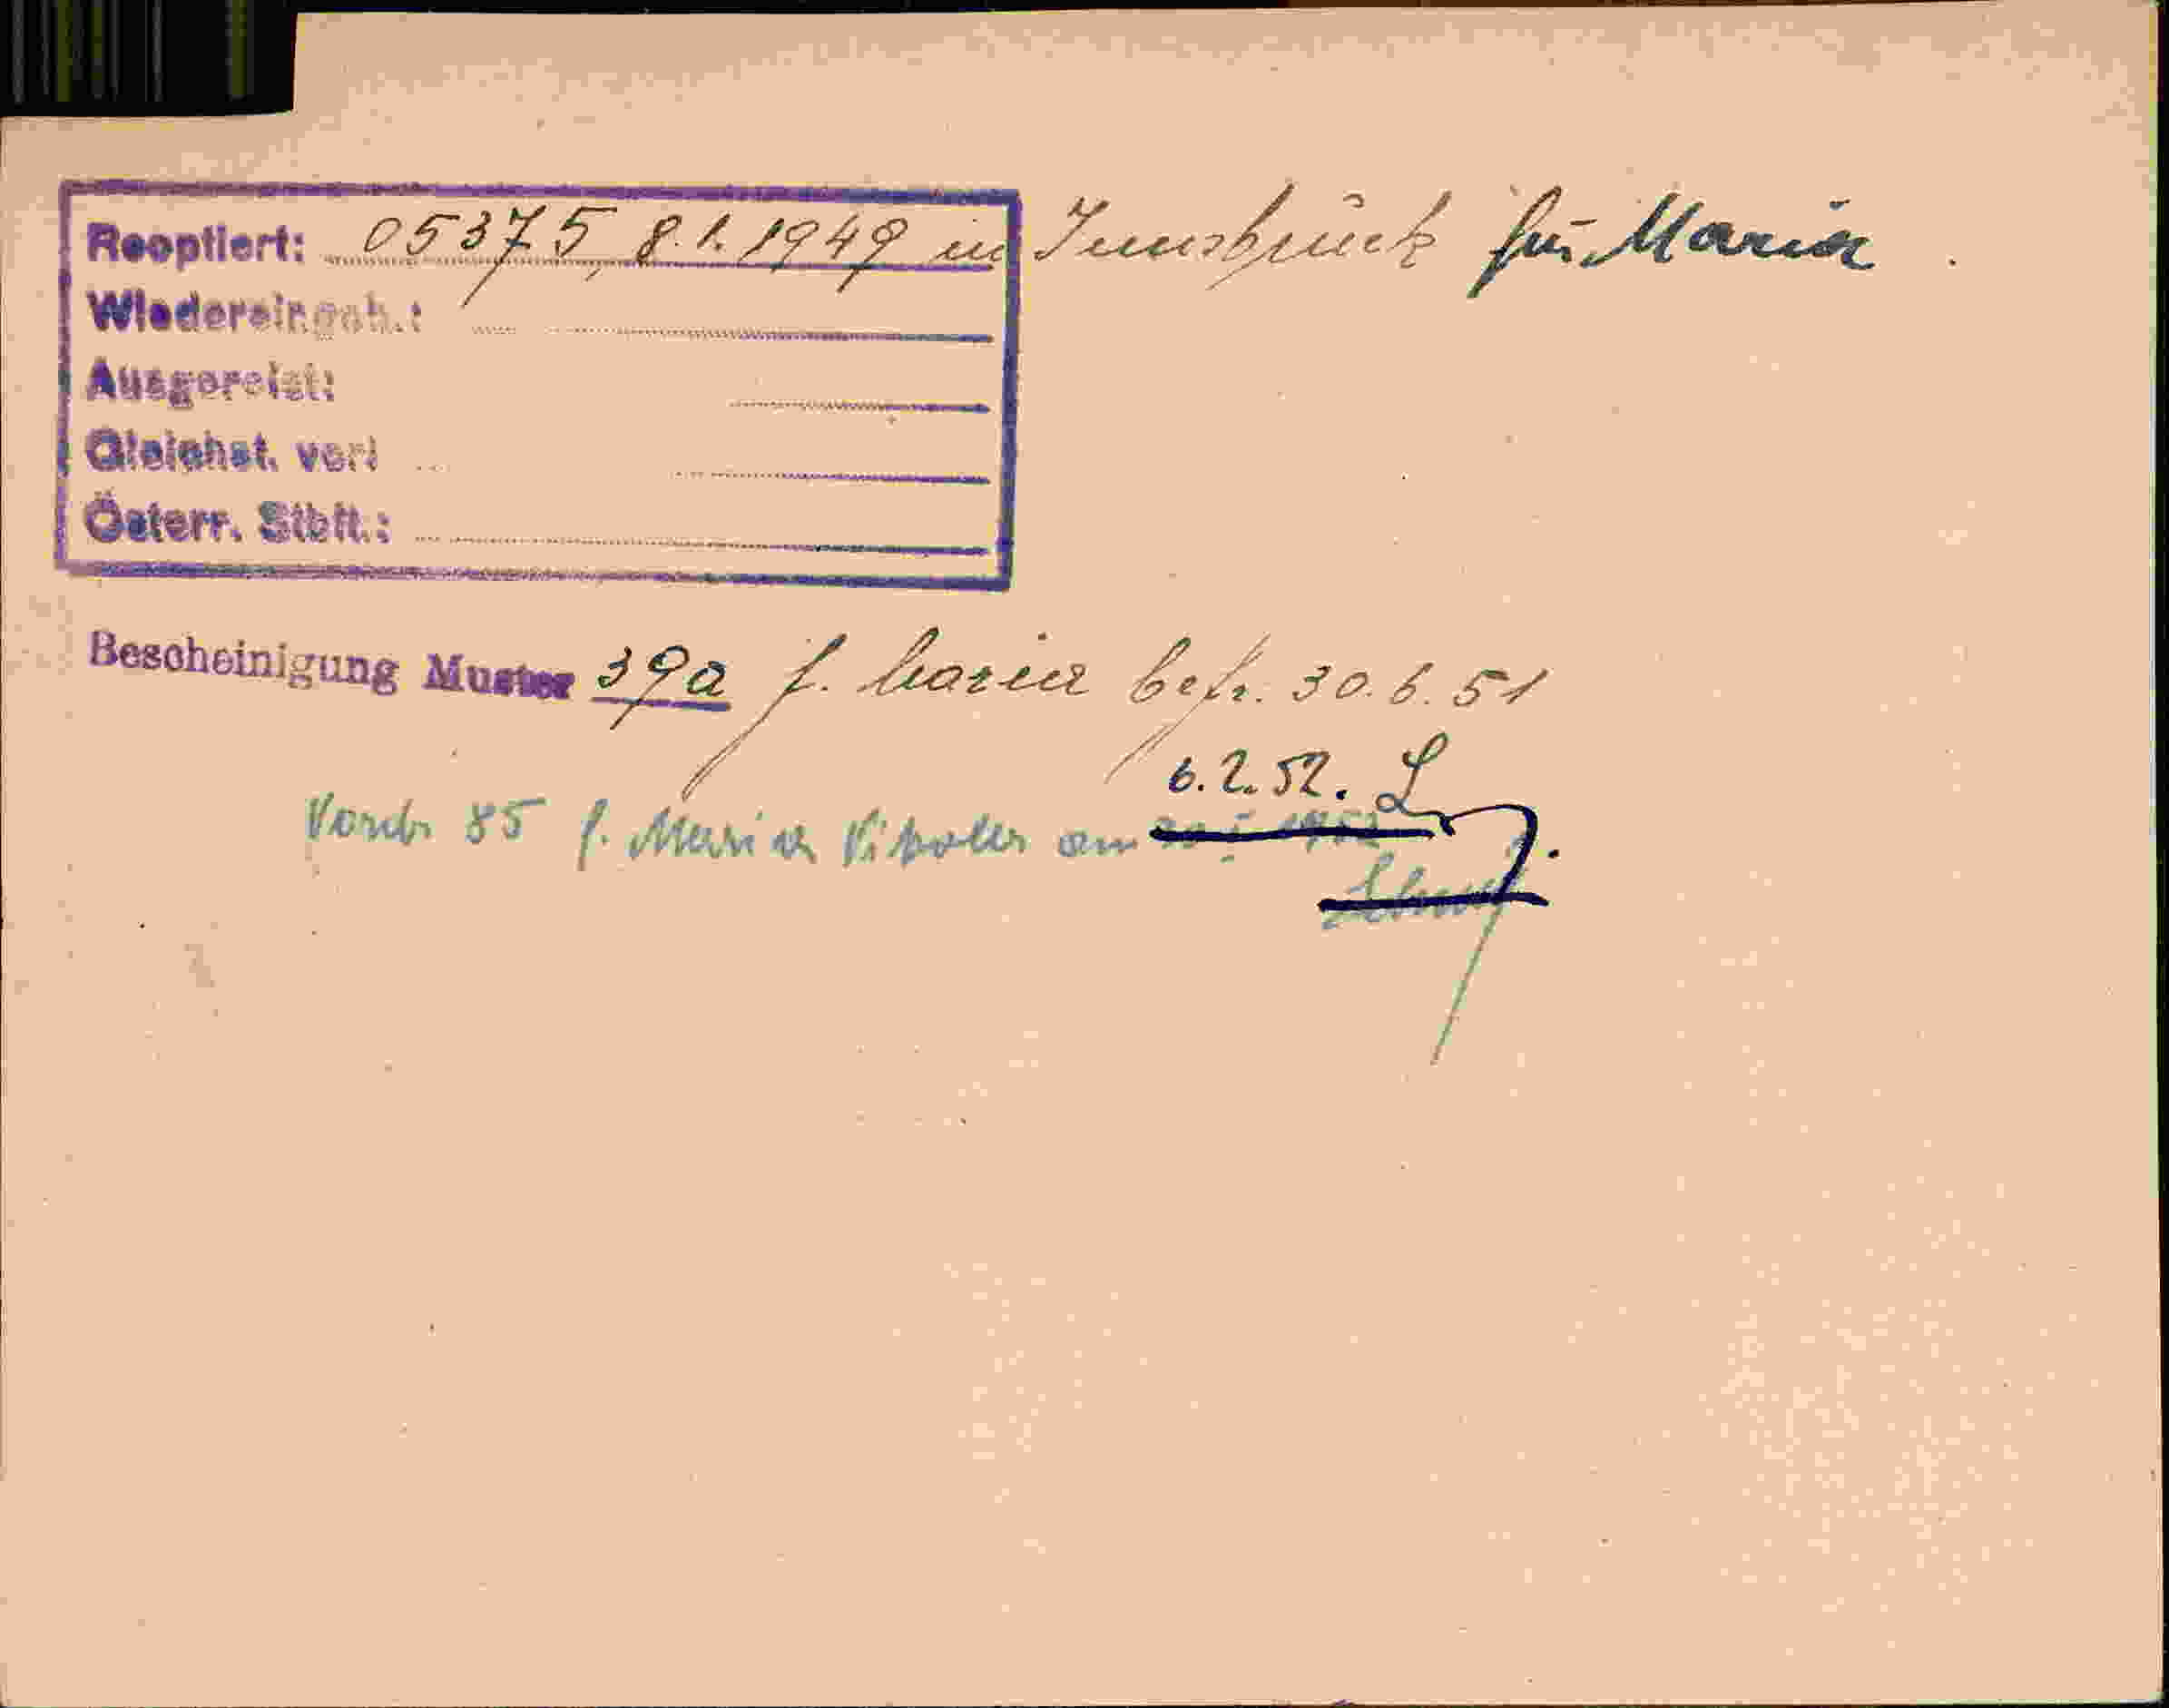 Reoptiert: 05375, 8.1.1949 in Innsbruck für Maria.
Wiedereingeb.:
Ausgereist:
Gleichst. verl
Österr. Stbft.:
Bescheinigung Muster 39a f. Maria befr. 30.6.51
6.2.52.
Vordr 85 f. Maria am